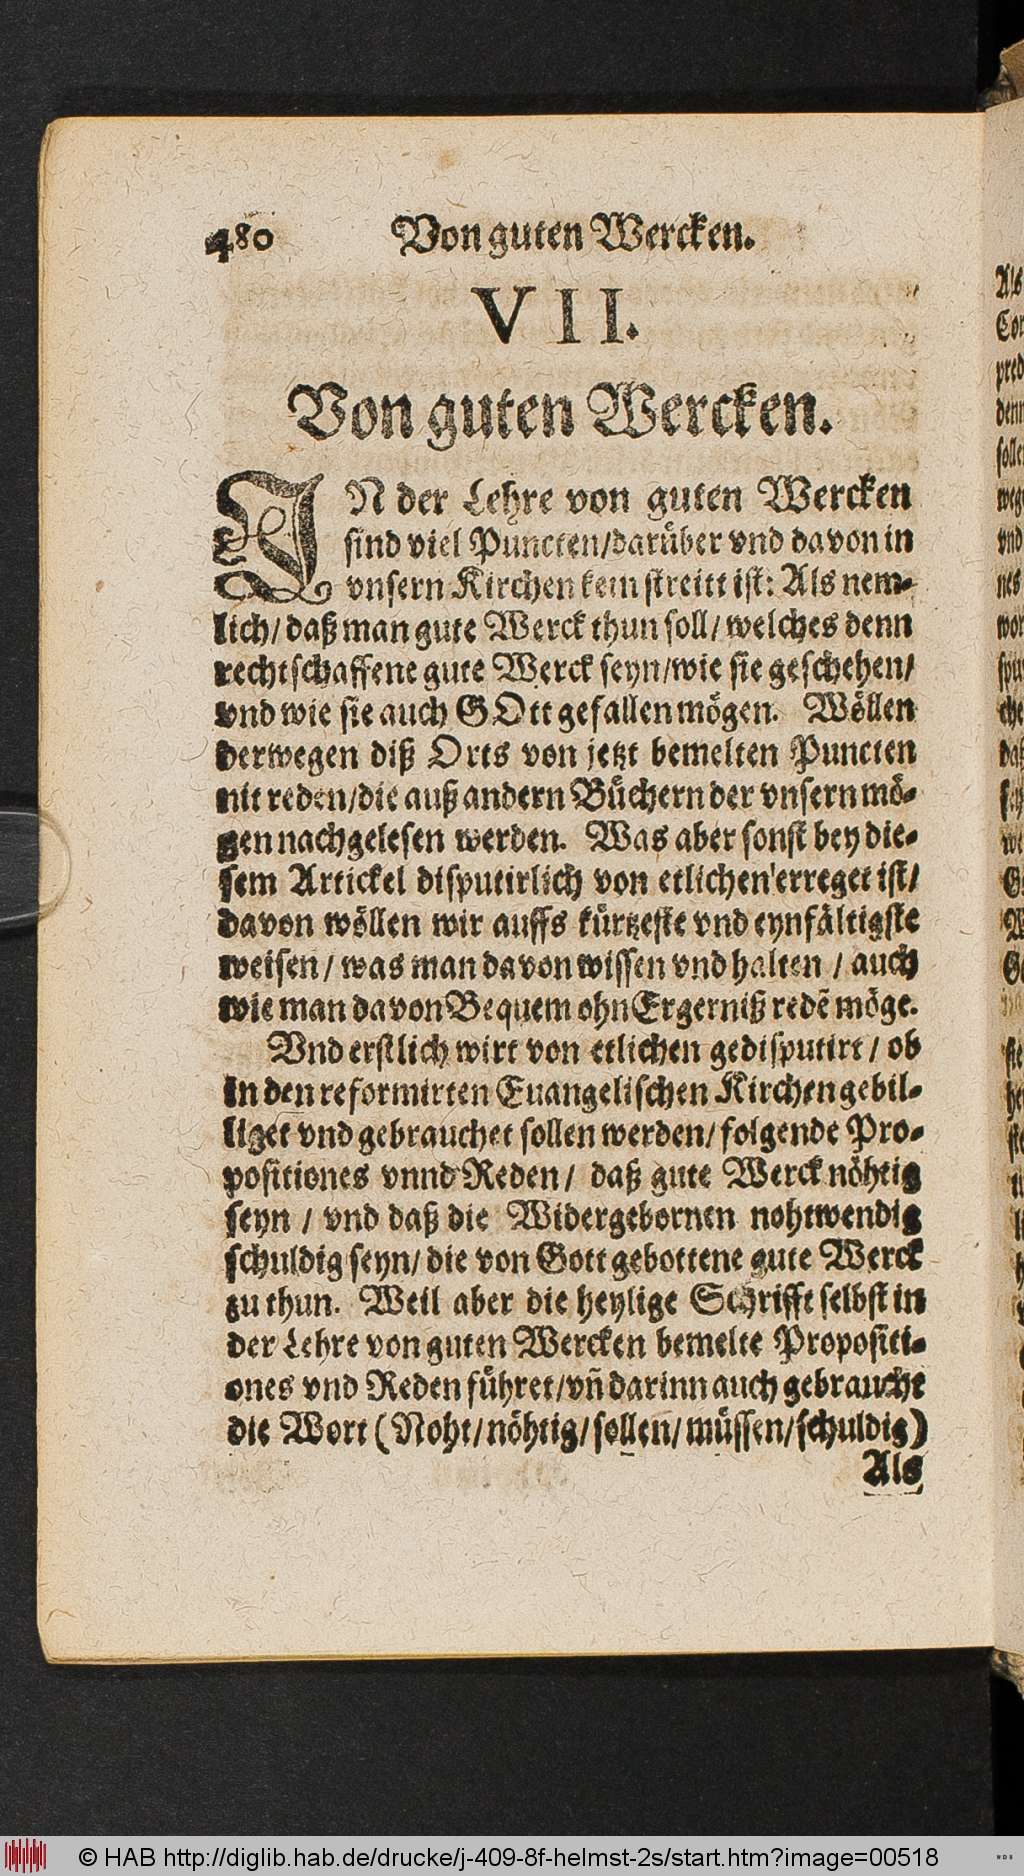 480 Von guten Wercken.
VII.
Von guten Wercken.
IN der Lehre von guten Wercken
sind viel Puncten/darüber vnd davon in
vnsern Kirchen kein streitt ist: Als nem-
lich/ daß man gute Werck thun soll/ welches denn
rechtschaffene gute Werck seyn/wie sie geschehen/
vnd wie sie auch GOtt gefallen mögen. Wöllen
derwegen diß Orts von jetzt bemelten Puncten
nit reden/die auß andern Büchern der vnsern mö-
gen nachgelesen werden. Was aber sonst bey die-
sem Artickel disputirlich von etlichen erreget ist/
davon wöllen wir auffs kürtzeste vnd eynfältigste
weisen/ was man davon wissen vnd halten / auch
wie man davon Bequem ohn Ergerniß redẽ möge.
Vnd erstlich wirt von etlichen gedisputirt / ob
in den reformirten Euangelischen Kirchen gebil-
liget vnd gebrauchet sollen werden/ folgende Pro-
positiones vnnd Reden/ daß gute Werck nöhtig
seyn / vnd daß die Widergebornen nohtwendig
schuldig seyn/ die von Gott gebottene gute Werck
zu thun. Weil aber die heylige Schrifft selbst in
der Lehre von guten Wercken bemelte Propositi-
ones vnd Reden führet/vñ darinn auch gebraucht
die Wort (Noht/nöhtig/sollen/müssen/schuldig)
Als
© HAB http://diglib.hab.de/drucke/j-409-8f-helmst-2s/start.htm?image=00518